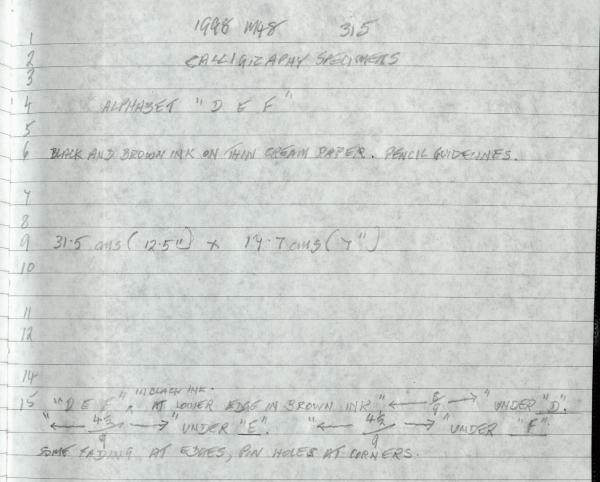 1998 M48 315
1
2 CALLIGRAPHY SPECIMENS
3
4 ALPHABET "D E F"
5
6 BLACK AND BROWN INK ON THIN CREAM PAPER. PENCIL GUIDELINES.
7
8
9 31.5 cms (12.5") x 17.7 cms (7")
10
11
12
14
15 "D E F", IN BLACK INK. AT LOWER EDGE IN BROWN INK "← /9 →" UNDER "D".
"← 4½/9 →" UNDER "E". "← 4½/9 →" UNDER "F"
SOME FADING AT EDGES, PIN HOLES AT CORNERS.